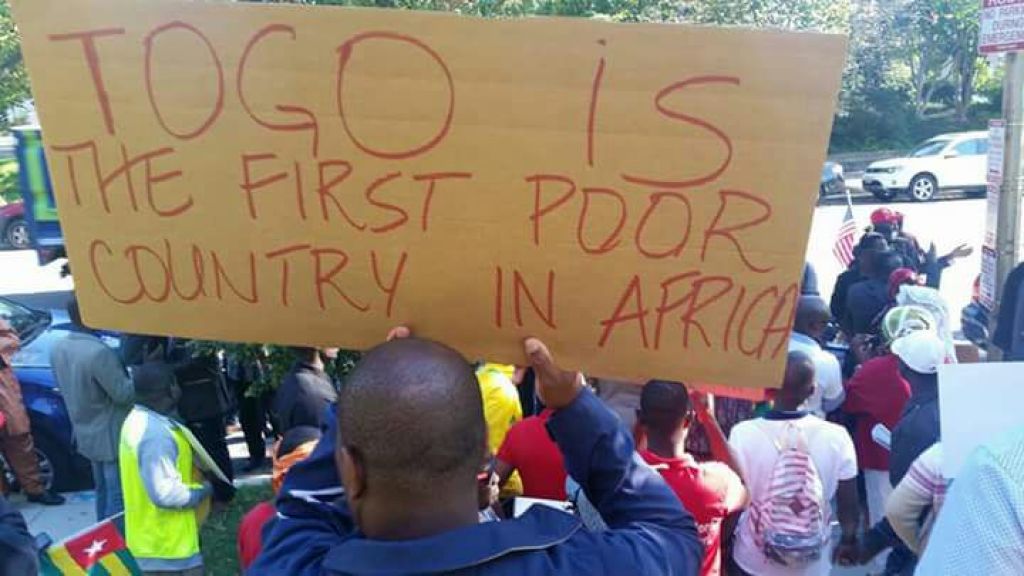 TOGO IS
THE FIRST POOR
COUNTRY IN AFRICA